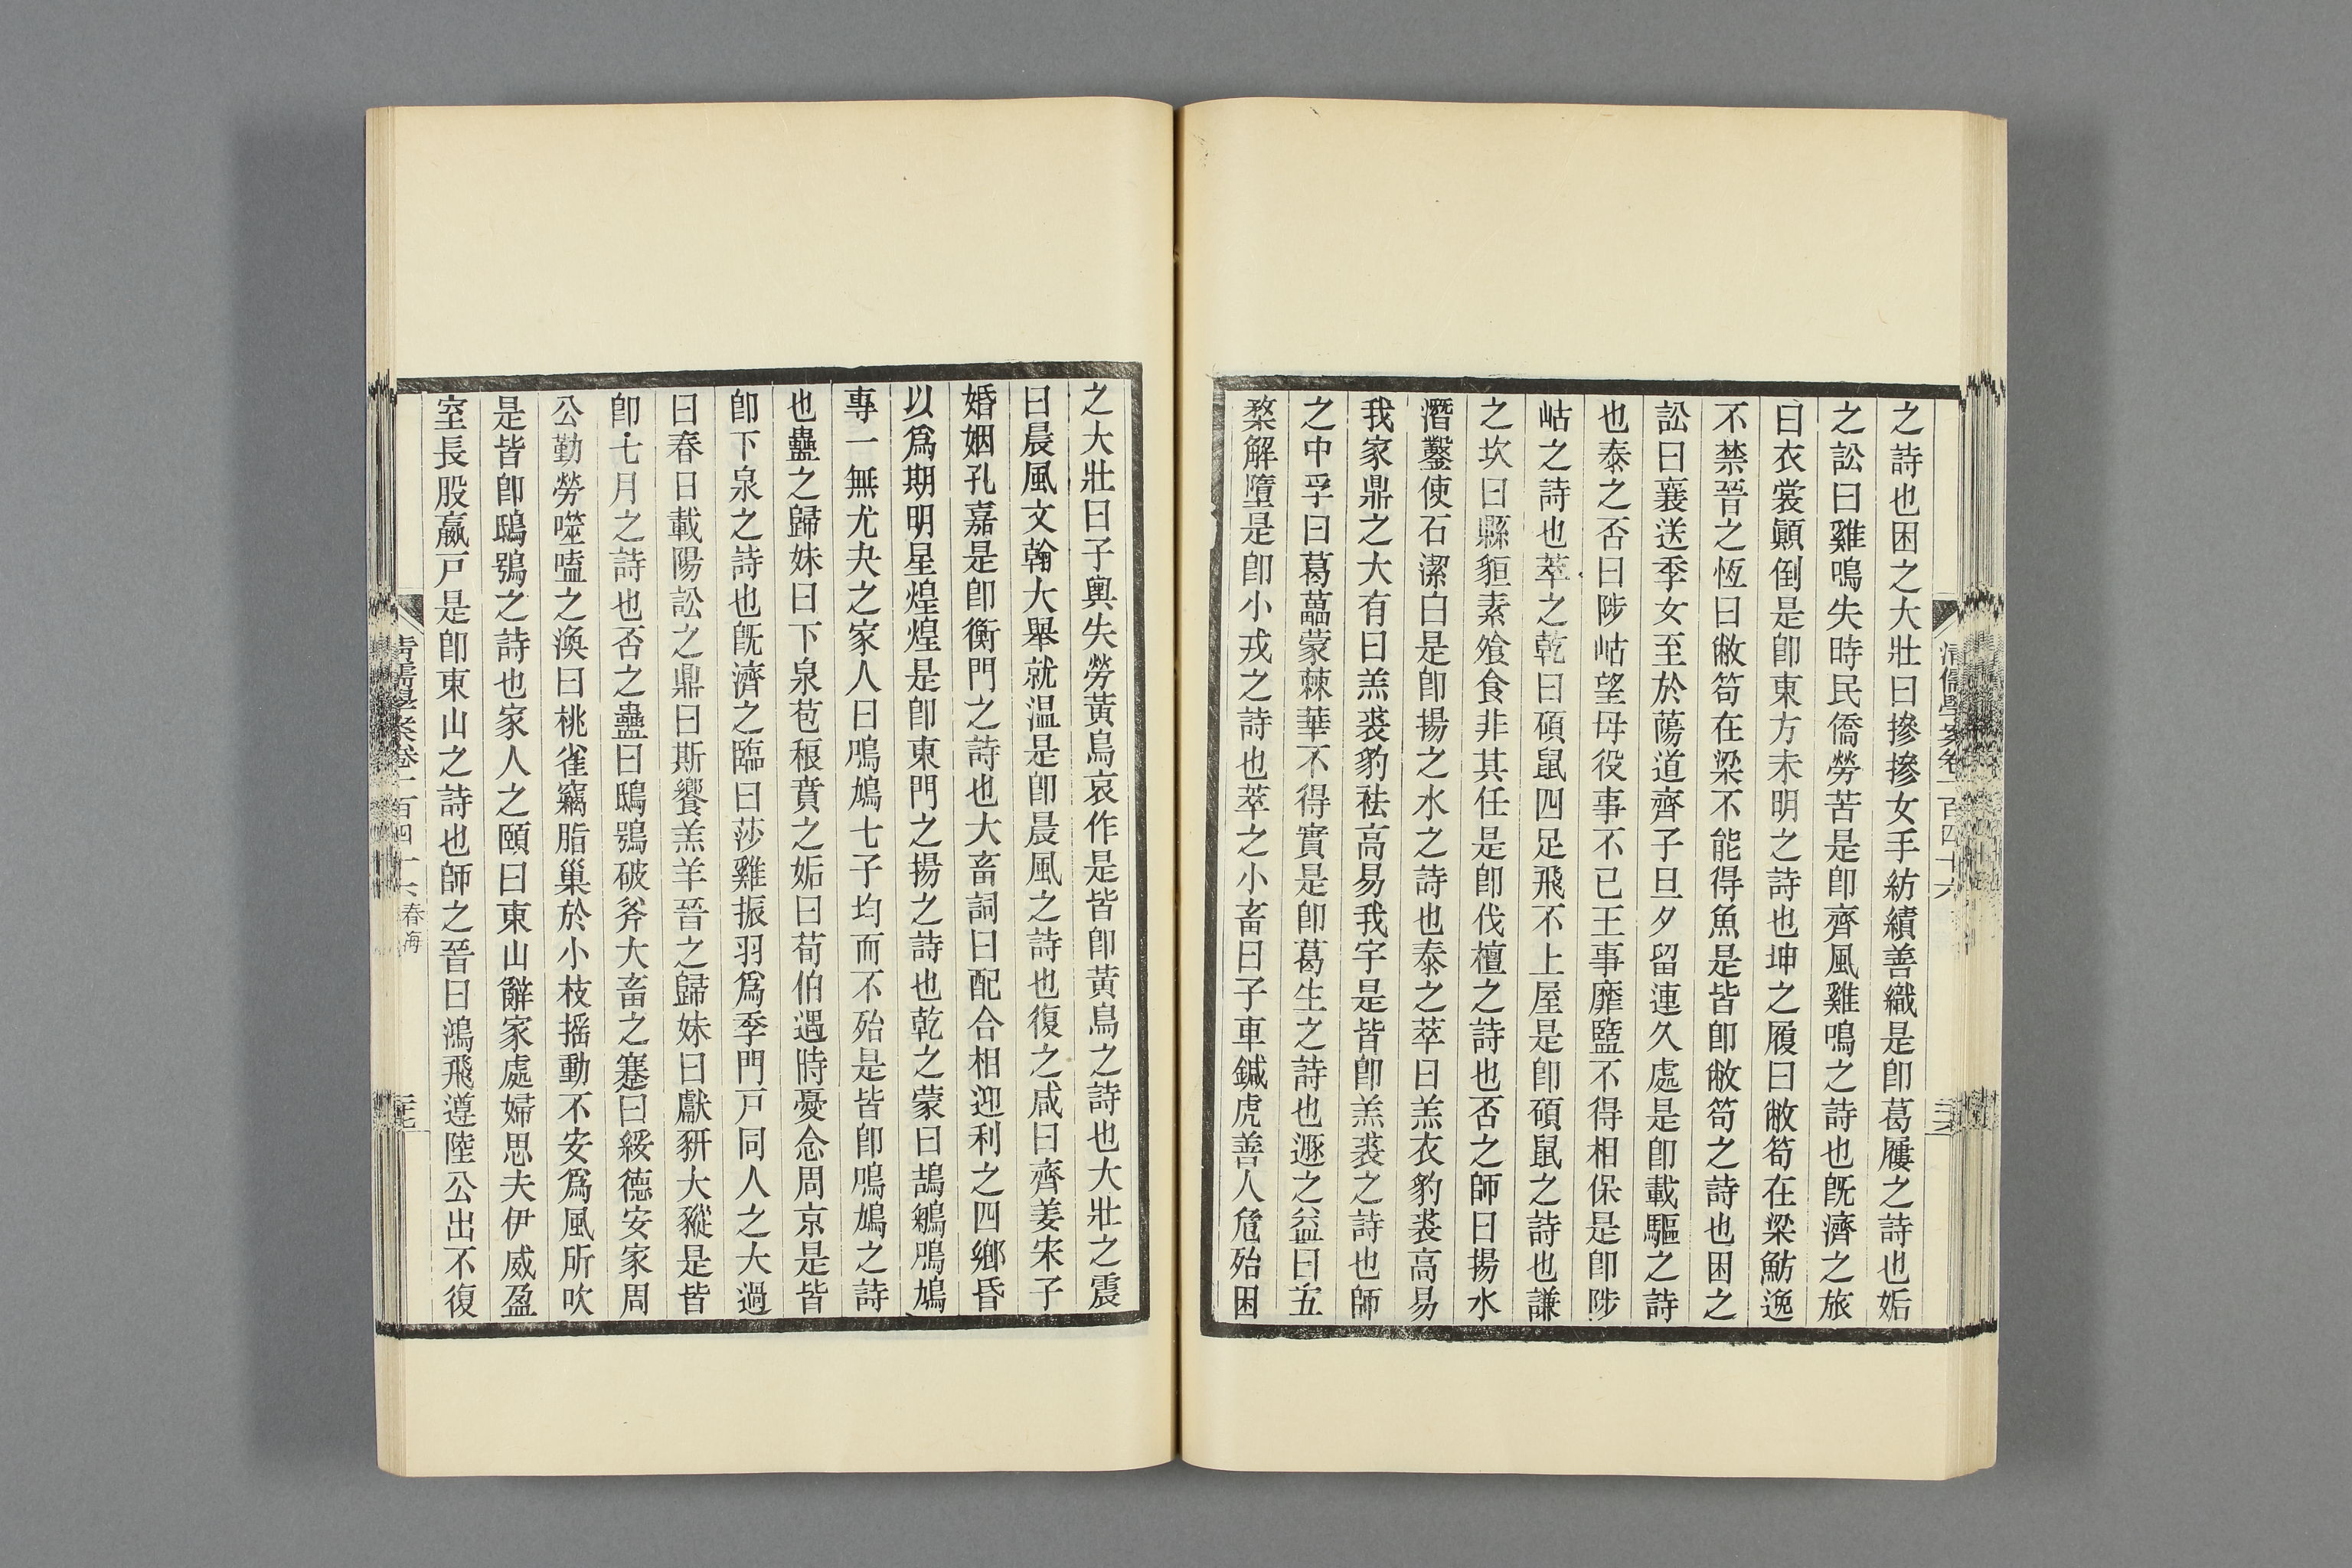 之詩也困之大壯曰摻摻女手紡績善織是卽葛屨之詩也姤
之訟曰雞鳴失時民僑勞苦是卽齊風雞鳴之詩也旣濟之旅
曰衣裳顚倒是卽東方未明之詩也坤之履曰敝笱在梁魴逸
不禁晉之恆曰敝笱在梁不能得魚是皆卽敝笱之詩也困之
訟曰襄送季女至於蕩道齊子旦夕留連久處是卽載驅之詩
也泰之否曰陟岵望母役事不已王事靡盬不得相保是卽陟
岵之詩也萃之乾曰碩鼠四足飛不上屋是卽碩鼠之詩也謙
之坎曰縣貆素飧食非其任是卽伐檀之詩也否之師曰揚水
潛鑿使石潔白是卽揚之水之詩也泰之萃曰羔衣豹裘高易
我家鼎之大有曰羔裘豹袪高易我宇是皆卽羔裘之詩也師
之中孚曰葛藟蒙棘華不得實是卽葛生之詩也遯之益曰五
楘解墮是卽小戎之詩也萃之小畜曰子車鍼虎善人危殆困
之大壯曰子輿失勞黃鳥哀作是皆卽黃鳥之詩也大壯之震
曰晨風文翰大舉就温是卽晨風之詩也復之咸曰齊姜宋子
婚姻孔嘉是卽衡門之詩也大畜詞曰配合相迎利之四鄉昏
以爲期明星煌煌是卽東門之揚之詩也乾之蒙曰鵠鵴鳲鳩
專一無尤夬之家人曰鳲鳩七子均而不殆是皆卽鳲鳩之詩
也蠱之歸妹曰下泉苞稂賁之姤曰荀伯遇時憂念周京是皆
卽下泉之詩也旣濟之臨曰莎雞振羽爲季門戸同人之大過
曰春日載陽訟之鼎曰斯饗羔羊晉之歸妹曰獻豜大豵是皆
卽七月之詩也否之蠱曰鴟鴞破斧大畜之蹇曰綏德安家周
公勤勞噬嗑之渙曰桃雀竊脂巢於小枝搖動不安爲風所吹
是皆卽鴟鴞之詩也家人之頤曰東山辭家處婦思夫伊威盈
室長股羸戸是卽東山之詩也師之晉曰鴻飛遵陸公出不復
清儒學案卷一百四十六 春海